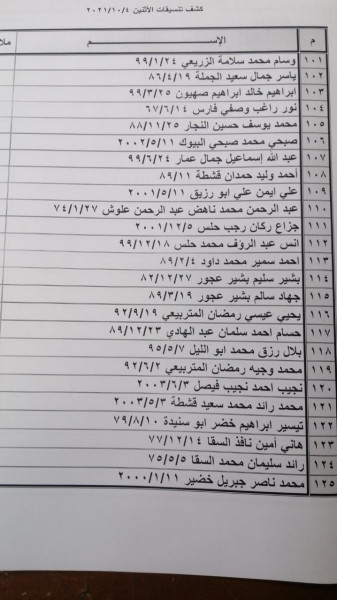 كشف تنسيقات الأثنين ٢٠٢١/١٠/٤
م الإســـم ملا
١٠١ وسام محمد سلامة الزريعي ٩٩/١/٢٤
١٠٢ ياسر جمال سعيد الجملة ٨٦/٤/١٩
١٠٣ ابراهيم خالد ابراهيم صهيون ٩٩/٣/٢٥
١٠٤ نور راغب وصفي فارس ٦٧/٦/١٤
١٠٥ محمد يوسف حسين النجار ٨٨/١١/٢٥
١٠٦ صبحي محمد صبحي البيوك ٢٠٠٢/٥/١١
١٠٧ عبد الله إسماعيل جمال عمار ٩٩/٦/٢٤
١٠٨ أحمد وليد حمدان قشطة ٨٩/١١
١٠٩ علي ايمن علي ابو رزيق ٢٠٠١/٥/١١
١١٠ عبد الرحمن محمد ناهض عبد الرحمن علوش ٧٤/١/٢٧
١١١ جزاع ركان رجب حلس ٢٠٠١/١٢/٥
١١٢ انس عبد الرؤف محمد حلس ٩٩/١٢/١٨
١١٣ احمد سمير محمد داود ٨٩/٢/٤
١١٤ بشير سليم بشير عجور ٨٢/١٢/٢٧
١١٥ جهاد سالم بشير عجور ٨٩/٣/١٩
١١٦ يحيي عيسي رمضان المتربيعي ٩٢/٩/١٩
١١٧ حسام احمد سلمان عبد الهادي ٨٩/١٢/٢٣
١١٨ بلال رزق محمد ابو الليل ٩٥/٥/٧
١١٩ محمد وجيه رمضان المتربيعي ٩٢/٦/٢
١٢٠ نجيب احمد نجيب فيصل ٢٠٠٣/٦/٣
١٢١ محمد رائد محمد سعيد قشطة ٢٠٠٣/٥/٣
١٢٢ تيسير ابراهيم خضر ابو سنيدة ٧٩/٨/١٠
١٢٣ هاني أمين نافذ السقا ٧٧/١٢/١٤
١٢٤ رائد سليمان محمد السقا ٧٥/٥/٥
١٢٥ محمد ناصر جبريل خضير ٢٠٠٠/١/١١